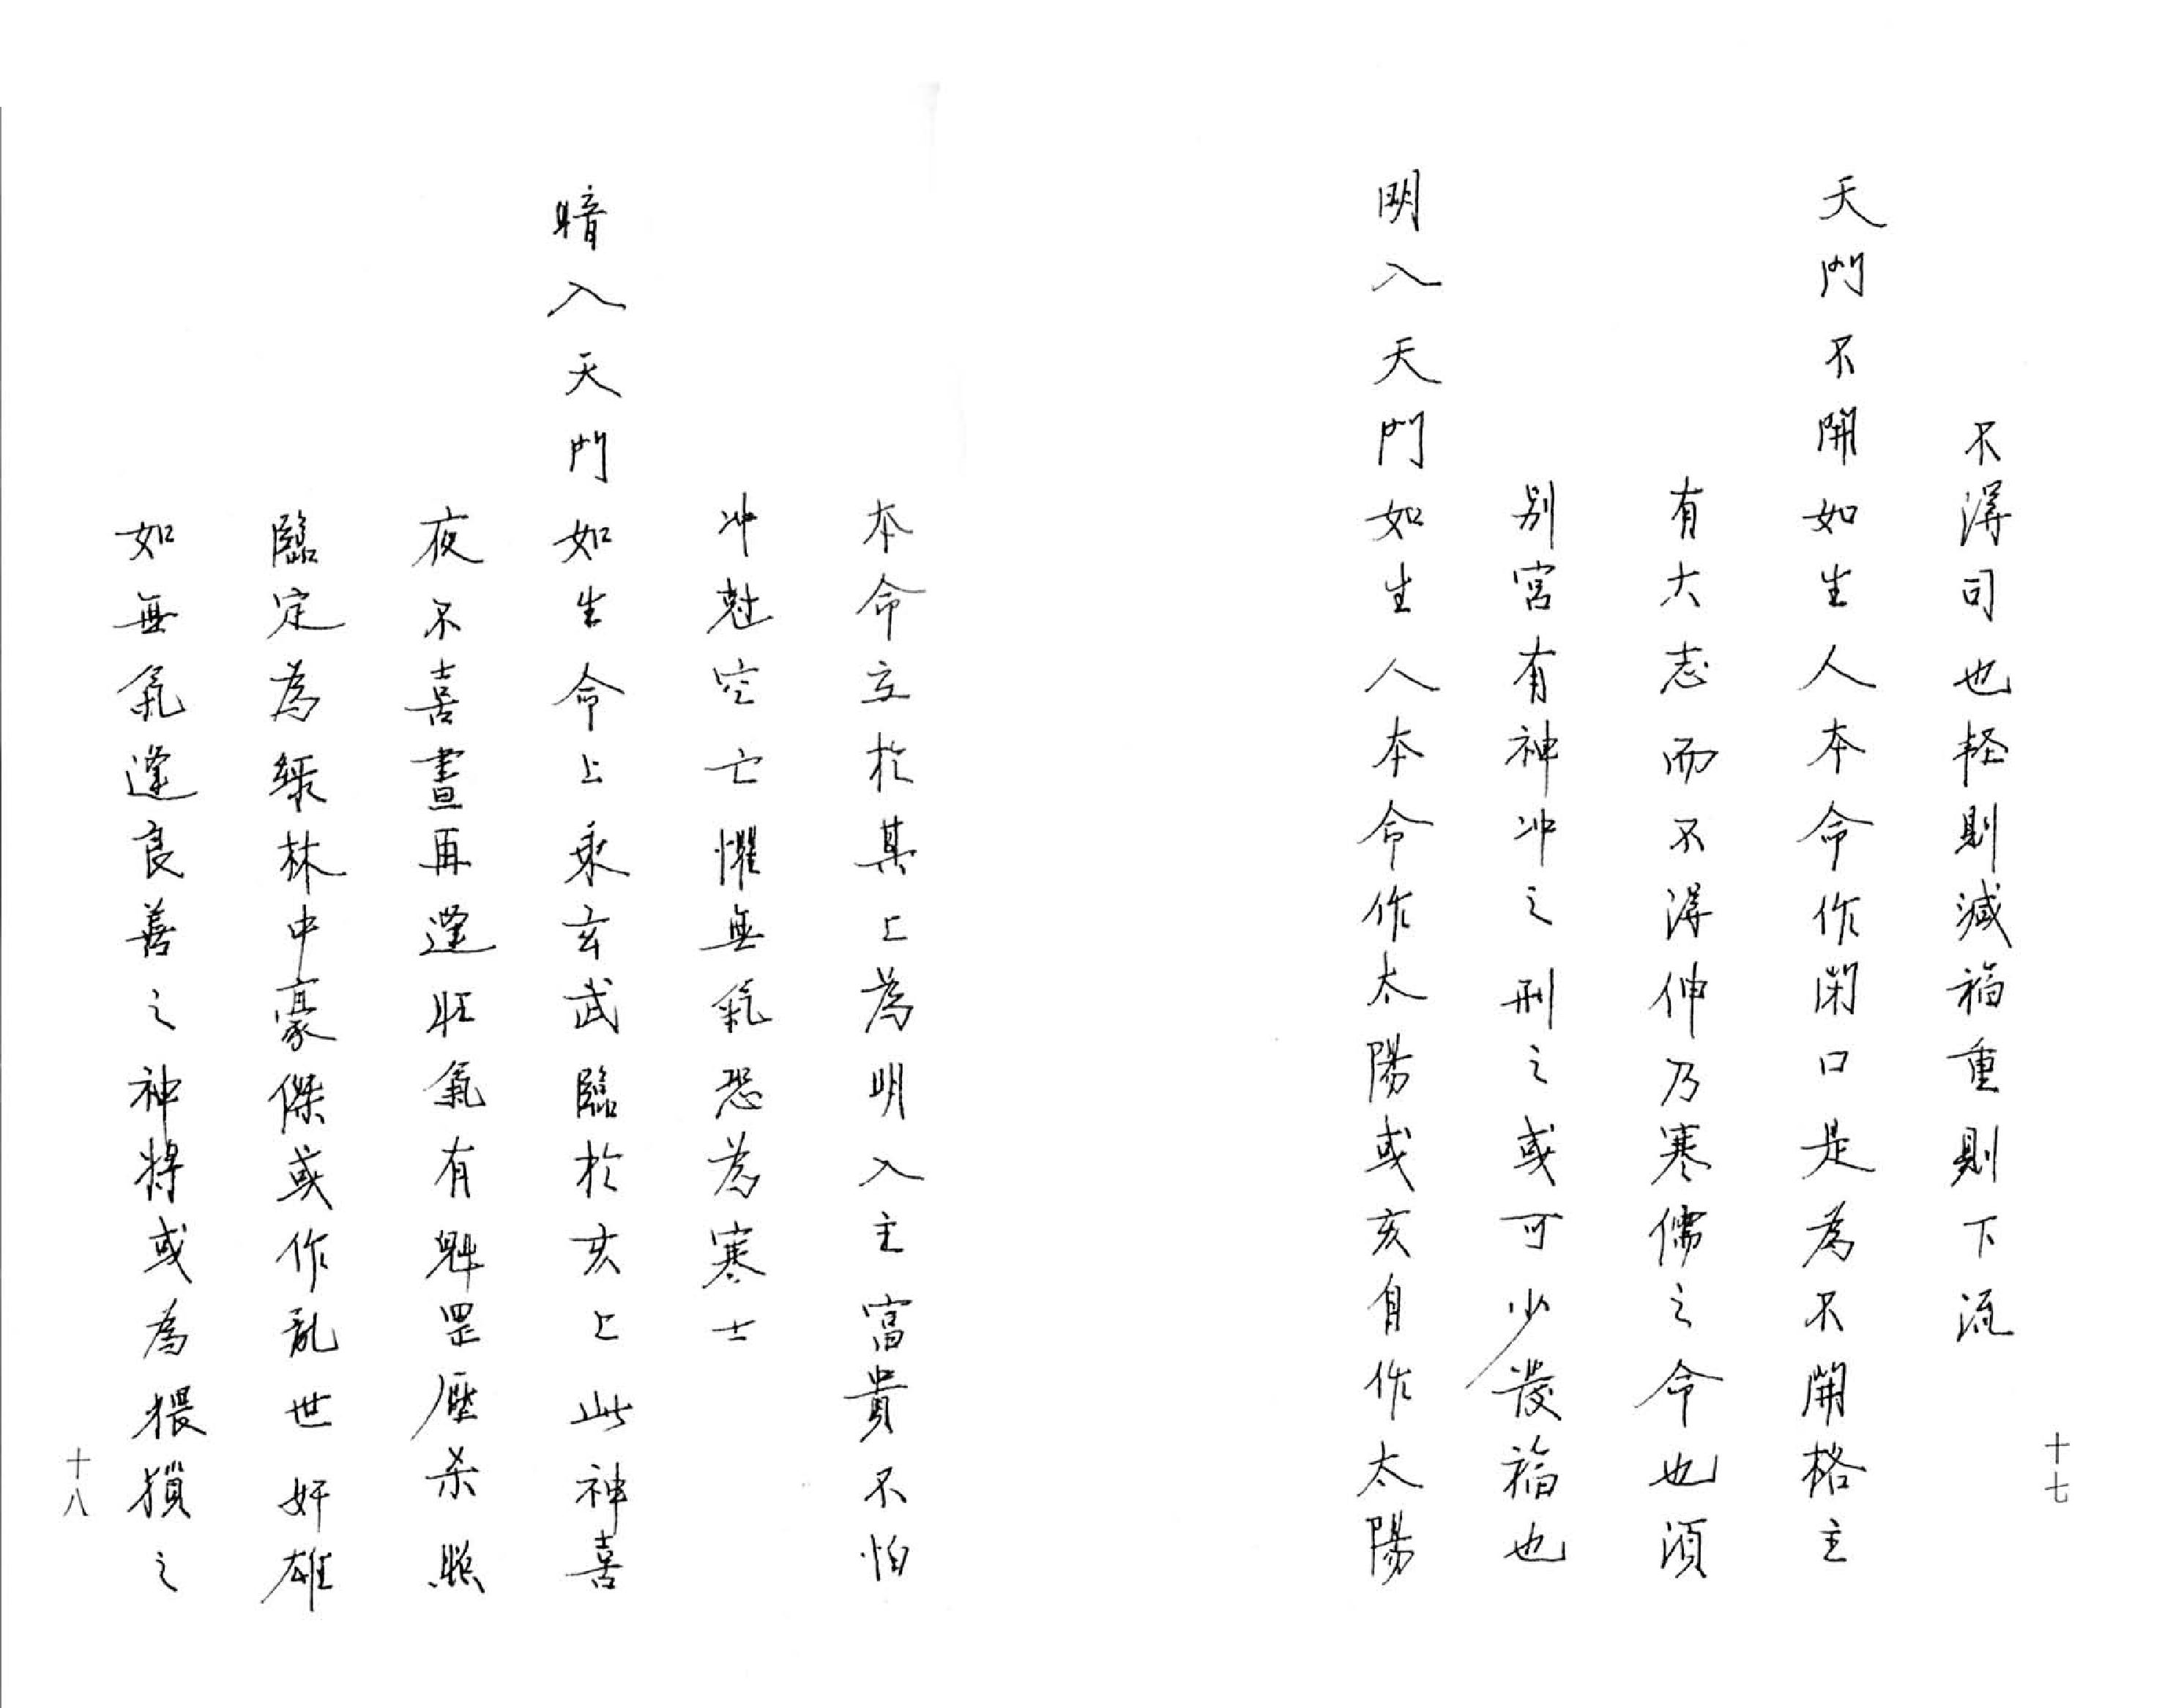 不得司也軽則減福重則下流
天門不開如生人本命作閉口是為不開格主
有大志而不得伸乃寒儒之命也須
別宮有神冲之刑之或可少發福也
明入天門如生人本命作太陽或亥自作太陽
十七
本命立於其上為明入主富貴不怕
冲尅空亡懼無氣恐為寒士
暗入天門如生命上乘玄武臨於亥上此神喜
夜不喜晝再逢旺氣有魁罡壓杀照
臨定為綠林中豪傑或作亂世奸雄
如無氣逢良善之神將或為猥𤨏之
十八